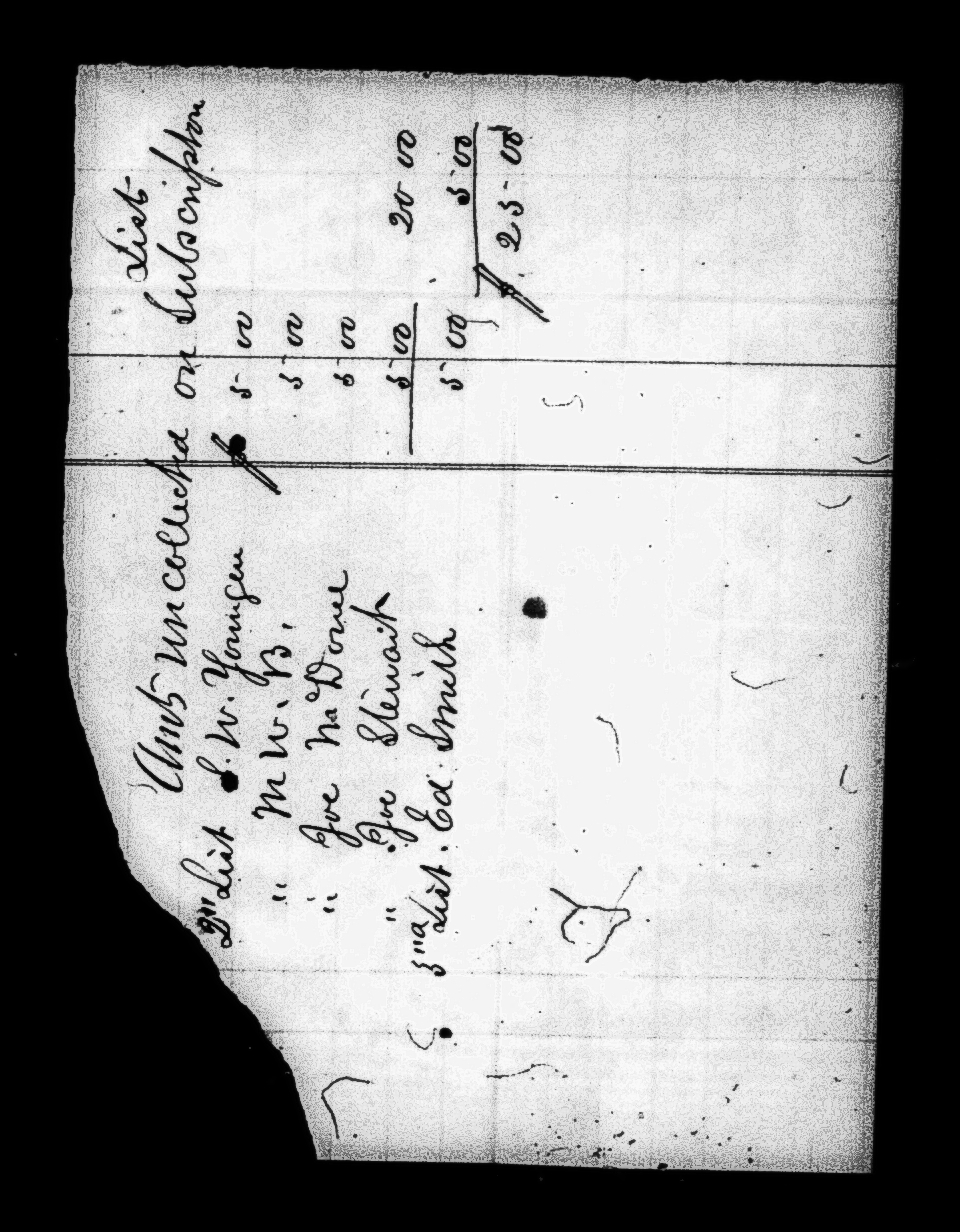 Amts uncollected on Subscription
List
2nd List S. W. Youngen $ 5 00
" M W. B. 5 00
" Joe McDowel 5 00
" Joe Stewart 5 00 20 00
3nd List. Ed. Smith 5 00 5 00
$ 25 00